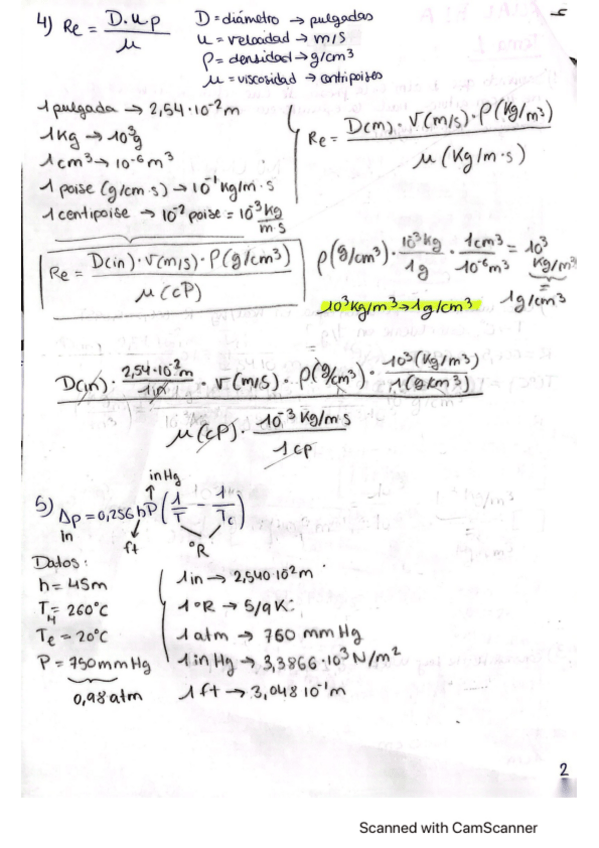 4) Re = D.u.ρ / μ
D = diámetro → pulgadas
u = velocidad → m/s
ρ = densidad → g/cm³
μ = viscosidad → centipoises
1 pulgada → 2,54·10⁻²m
1Kg → 10³g
1cm³ → 10⁻⁶m³
1 poise (g/cm·s) → 10⁻¹ Kg/m·s
1 centipoise → 10⁻² poise = 10⁻³ Kg / m·s
Re = D(m)·V(m/s)·ρ(Kg/m³) / μ(Kg/m·s)
Re = D(in)·V(m/s)·ρ(g/cm³) / μ(cP)
ρ(g/cm³)· 10⁻³Kg / 1g · 1cm³ / 10⁻⁶m³ = 10³ Kg/m³ = 1g/cm³
10³Kg/m³ → 1g/cm³
=
D(in)· 2,54·10⁻²m / 1in · V(m/s)·ρ(g/cm³)· 10³(Kg/m³) / 1(g/cm³)
μ(cP)· 10⁻³Kg/m·s / 1cp
inHg
5) Δp = 0,256hP (1/T - 1/Tc)
in
ft
°R
Datos:
h = 45m
T = 260°C
Te = 20°C
P = 750mmHg
0,98atm
1in → 2,540·10⁻²m
1°R → 5/9K
1atm → 760 mmHg
1inHg → 3,3866·10³N/m²
1ft → 3,048·10⁻¹m
2
Scanned with CamScanner